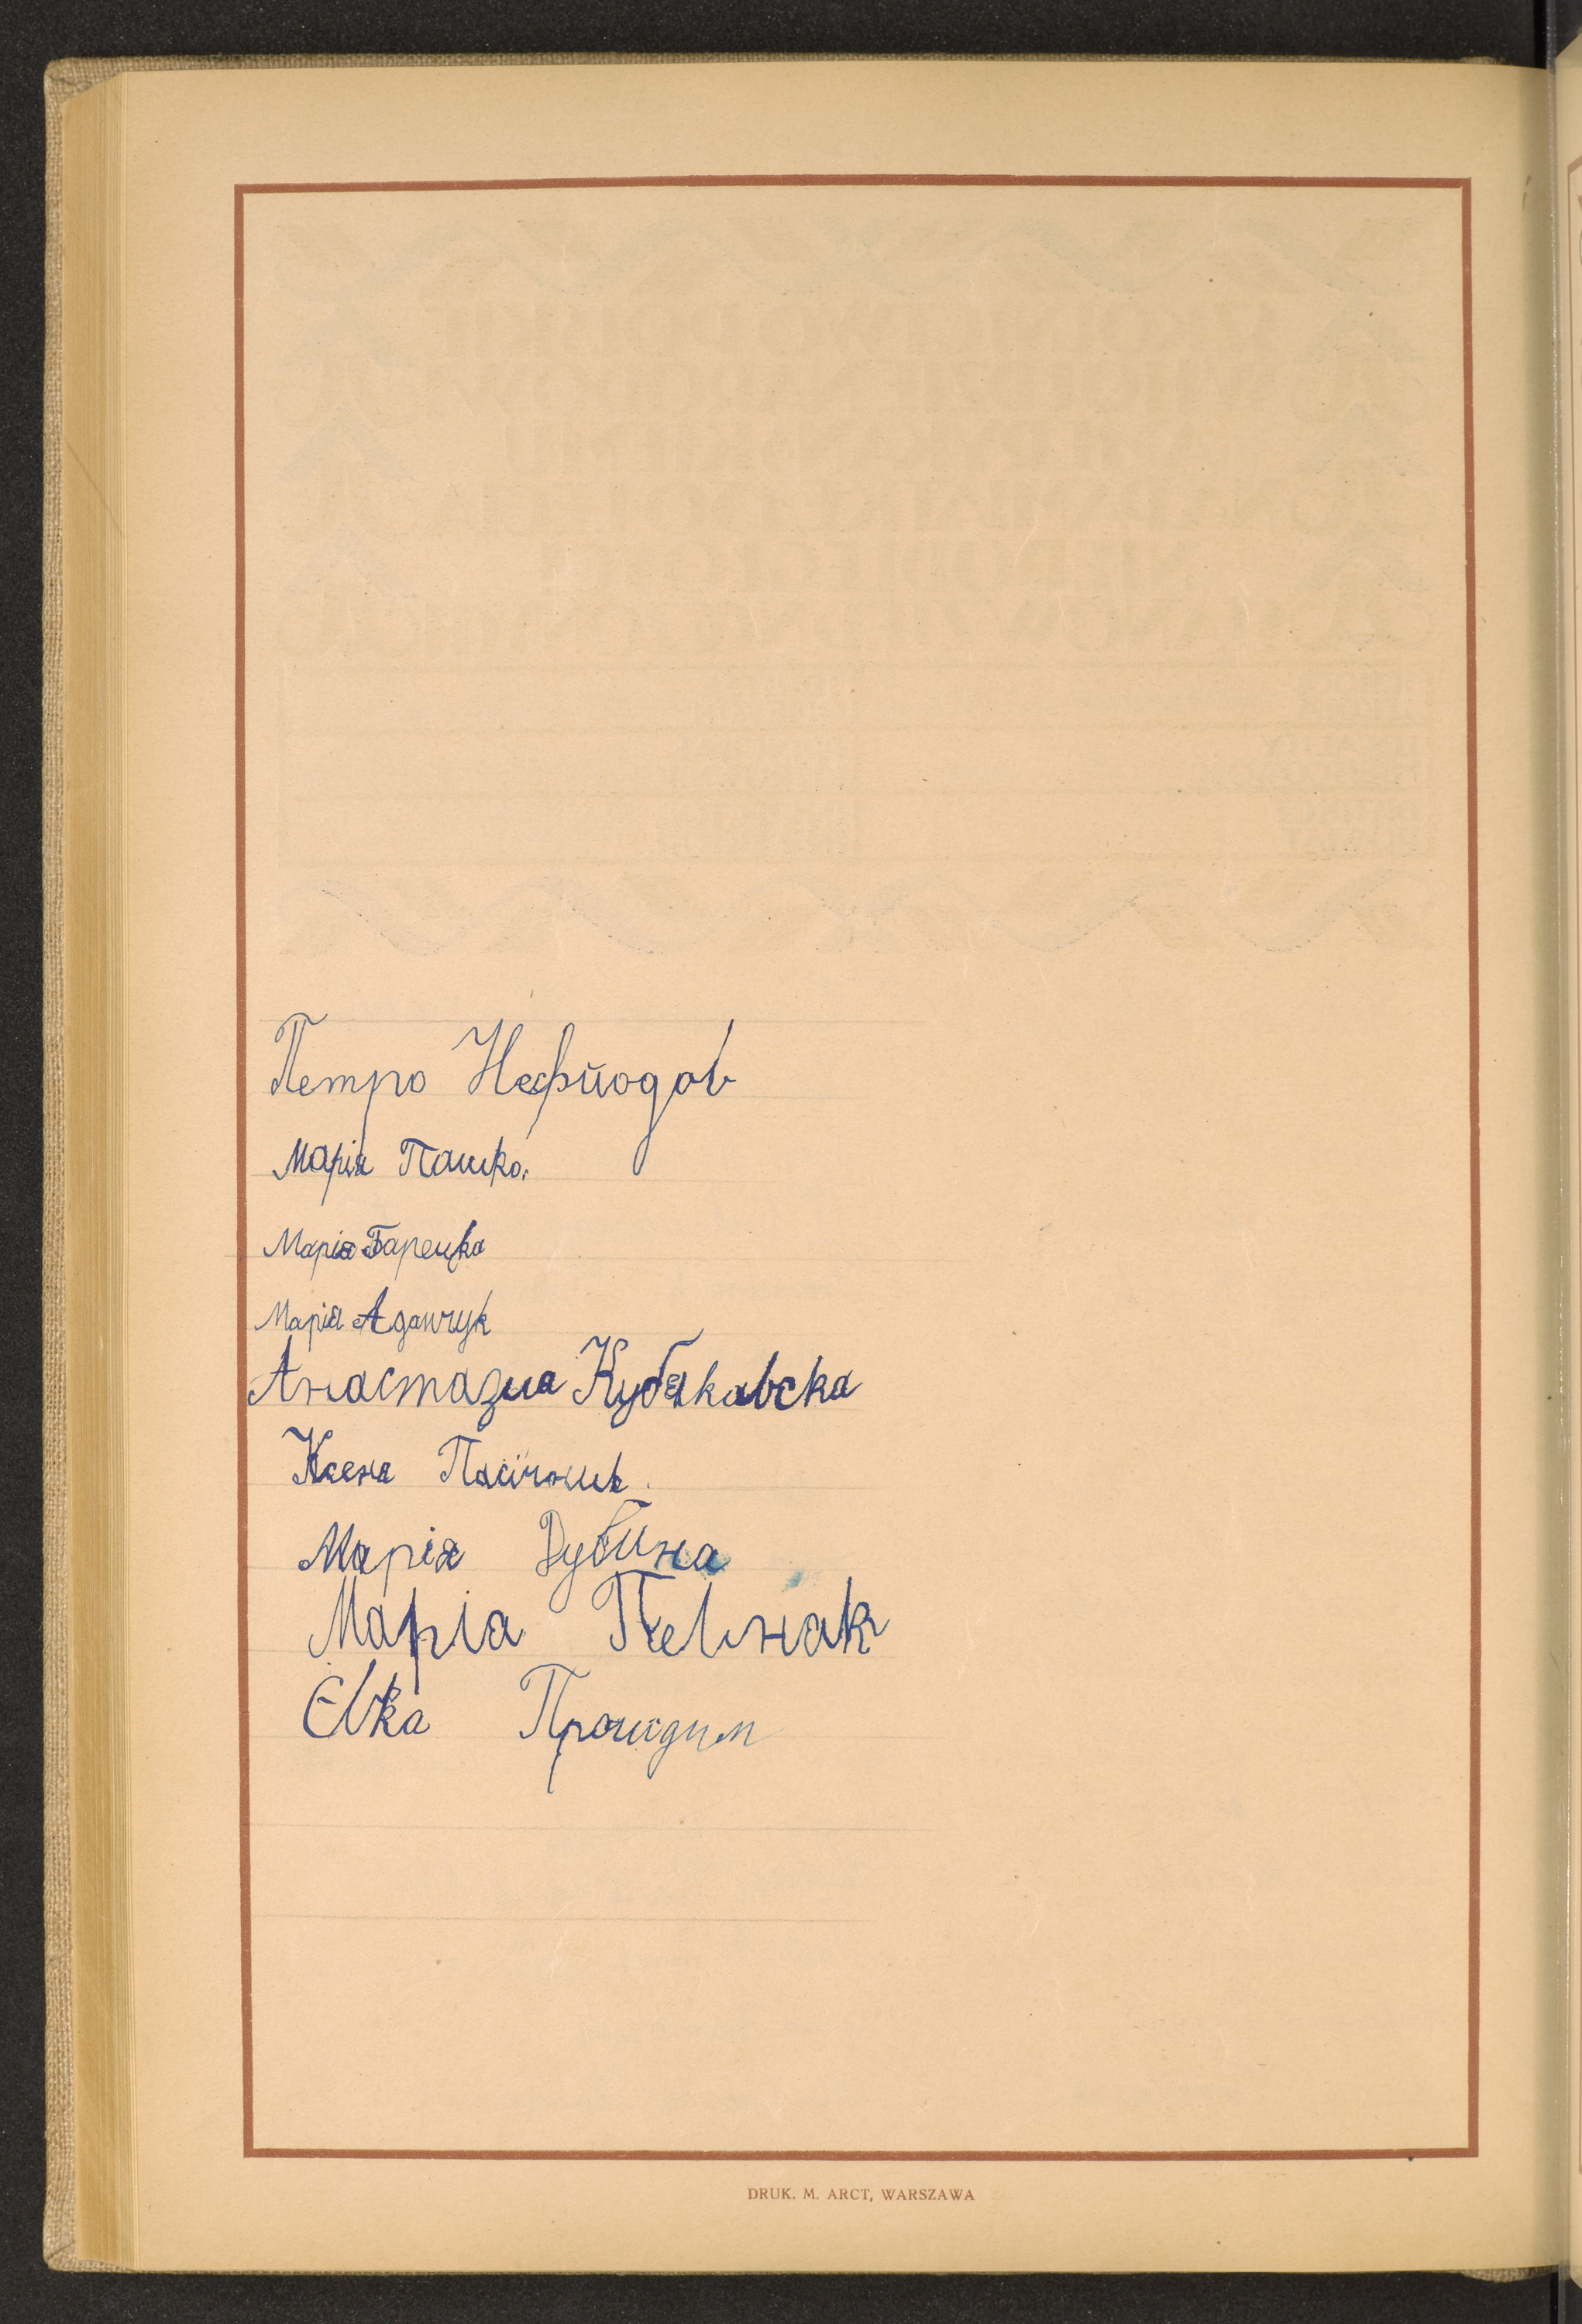 Петро Нефйодов
Марія Пашко.
Марія Барецка
Марія Адамчук
Анастазиа Кубяковска
Ксена Пасічник.
Марія Дубина
Маріа Певнак
Євка
DRUK. M. ARCT, WARSZAWA